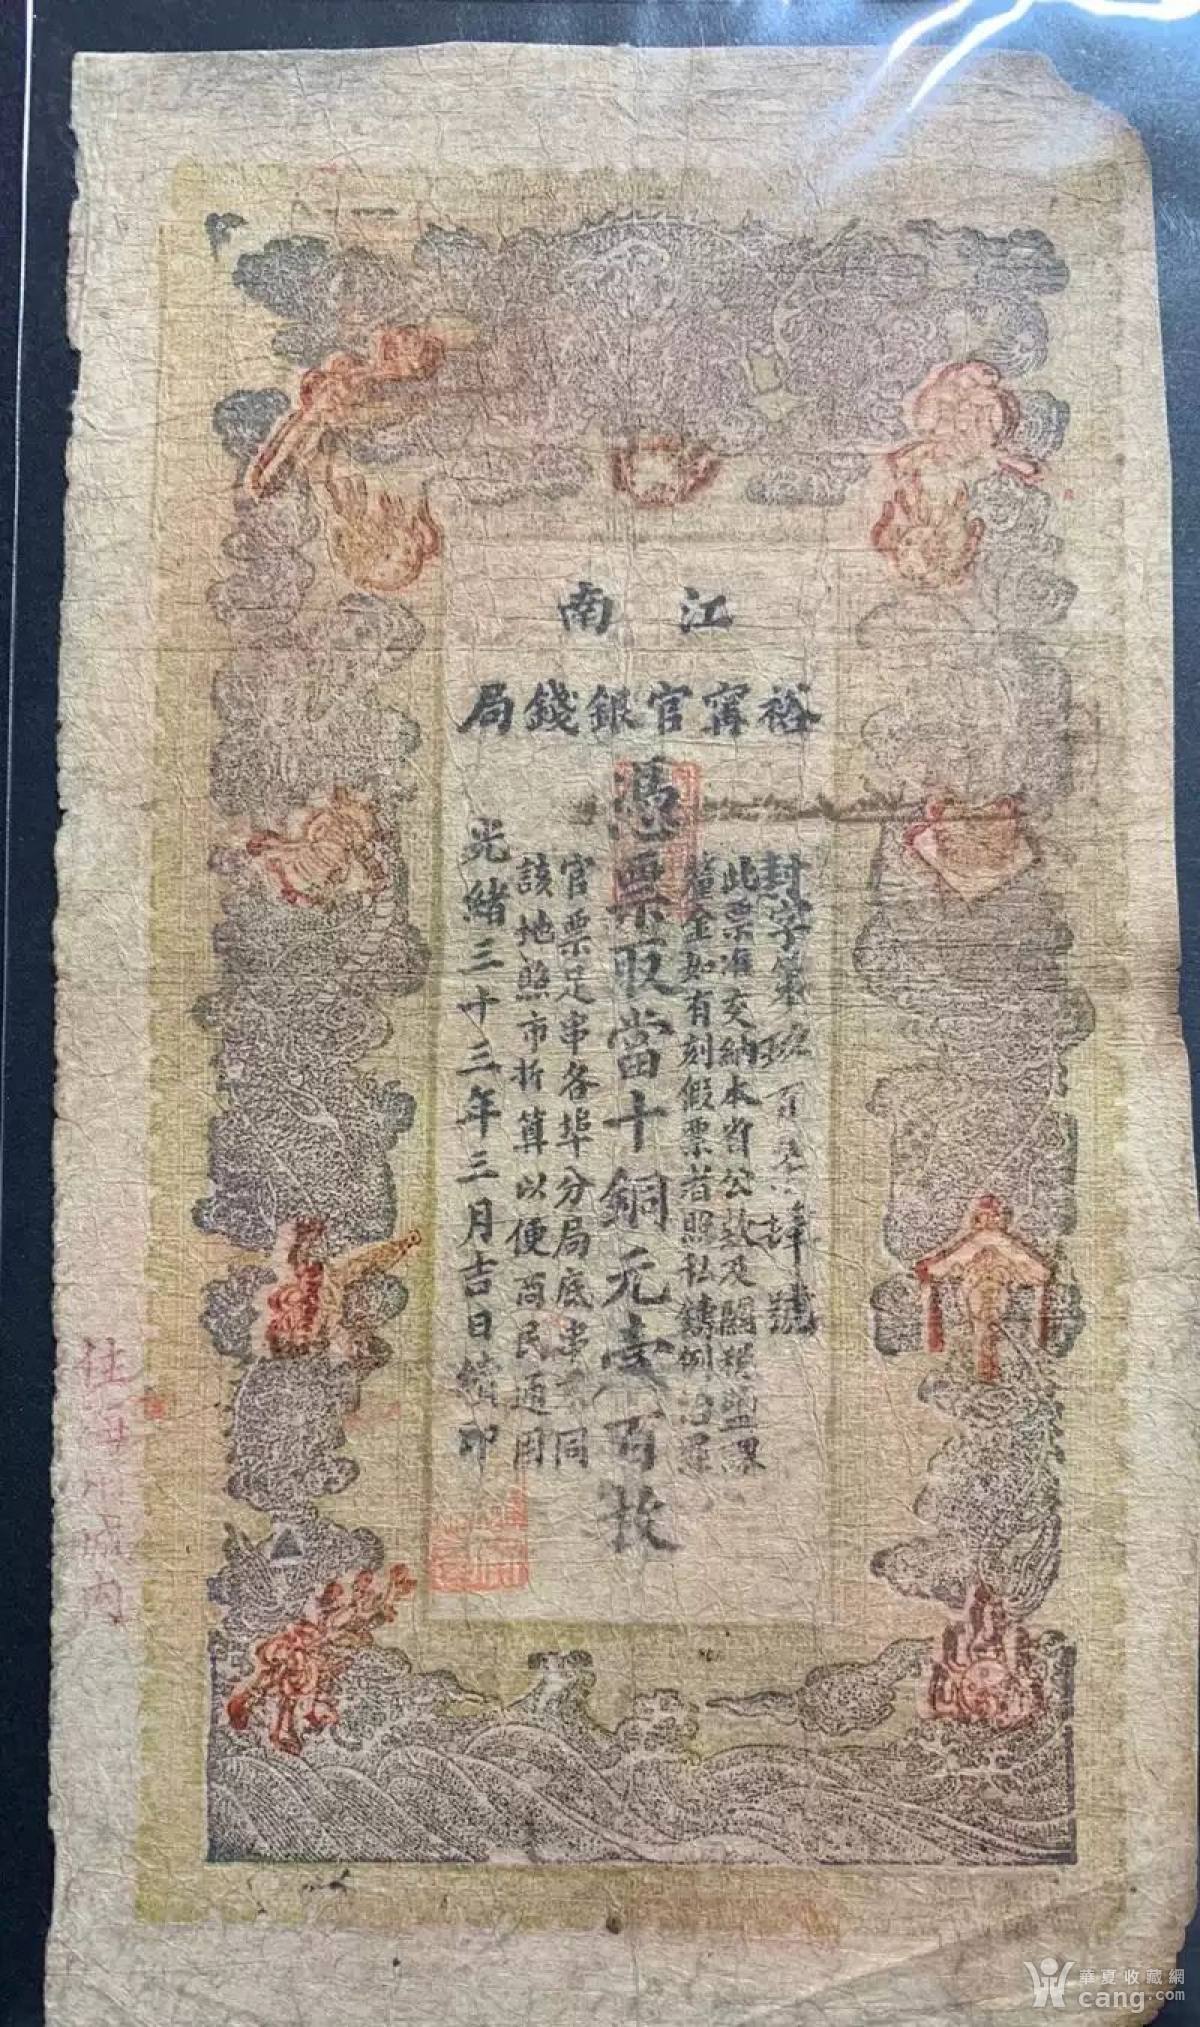 江南
裕甯官銀錢局
封字第玖百肆號
此票准交納本省公款及關稅鹽課
釐金如有刻假票者照私鑄例治罪
憑票取當十銅元壹百枚
官票足串各埠分局底串不同
該地照市折算以便商民通用
光緒三十三年三月吉日續印
城內
華夏收藏網
cang.com